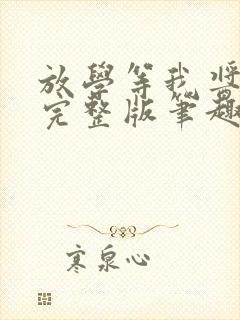 放學等我將
完整版筆趣
寒泉心